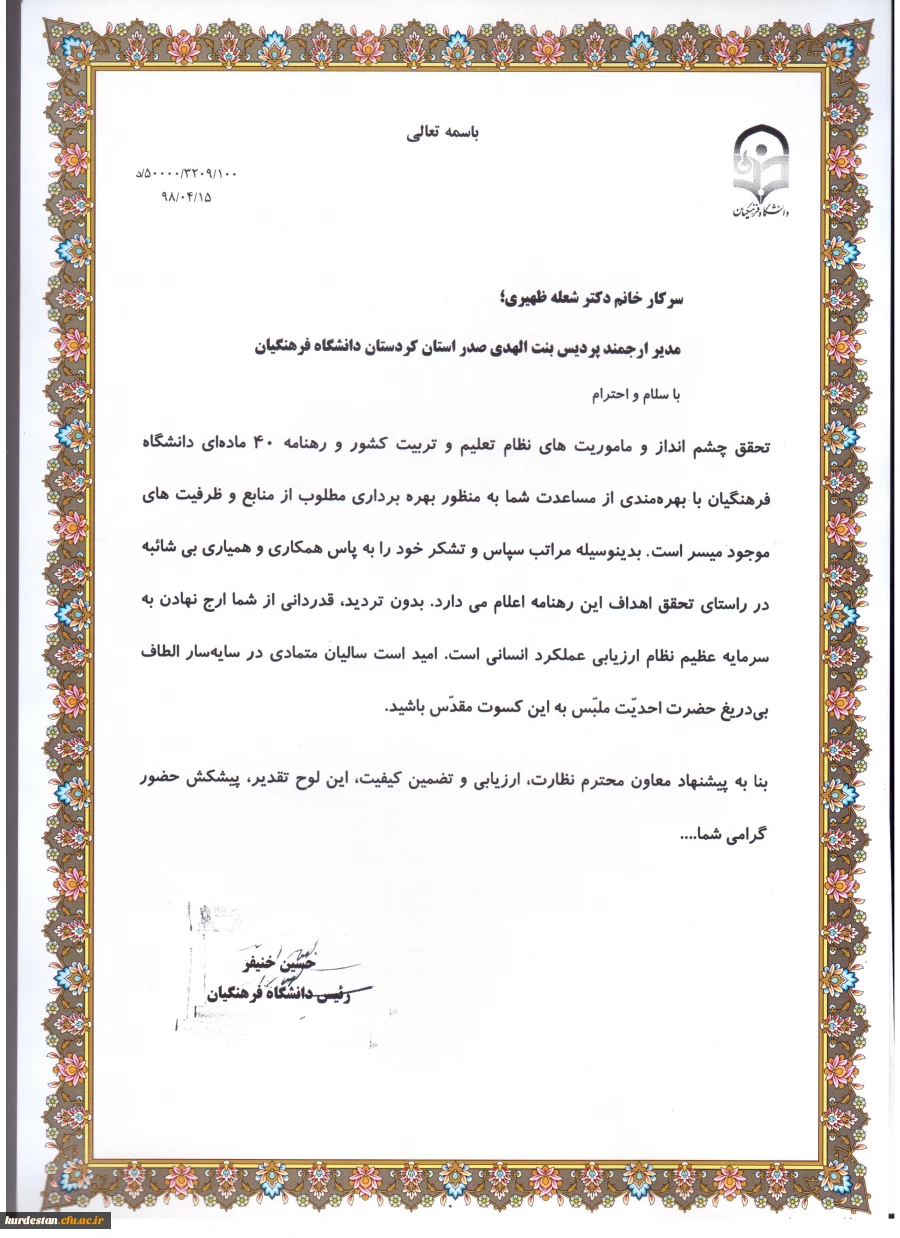 باسمه تعالی
۵۰۰۰۰/۳۲۰۹/۱۰۰/د
۹۸/۰۴/۱۵
دانشگاه فرهنگیان
سرکار خانم دکتر شعله ظهیری؛
مدیر ارجمند پردیس بنت الهدی صدر استان کردستان دانشگاه فرهنگیان
با سلام و احترام
تحقق چشم انداز و ماموریت های نظام تعلیم و تربیت کشور و رهنامه ۴۰ ماده‌ای دانشگاه
فرهنگیان با بهره‌مندی از مساعدت شما به منظور بهره برداری مطلوب از منابع و ظرفیت های
موجود میسر است. بدینوسیله مراتب سپاس و تشکر خود را به پاس همکاری و همیاری بی شائبه
در راستای تحقق اهداف این رهنامه اعلام می دارد. بدون تردید، قدردانی از شما ارج نهادن به
سرمایه عظیم نظام ارزیابی عملکرد انسانی است. امید است سالیان متمادی در سایه‌سار الطاف
بی‌دریغ حضرت احدیّت ملبّس به این کسوت مقدّس باشید.
بنا به پیشنهاد معاون محترم نظارت، ارزیابی و تضمین کیفیت، این لوح تقدیر، پیشکش حضور
گرامی شما....
حسین خنیفر
رئیس دانشگاه فرهنگیان
kurdestan.cfu.ac.ir